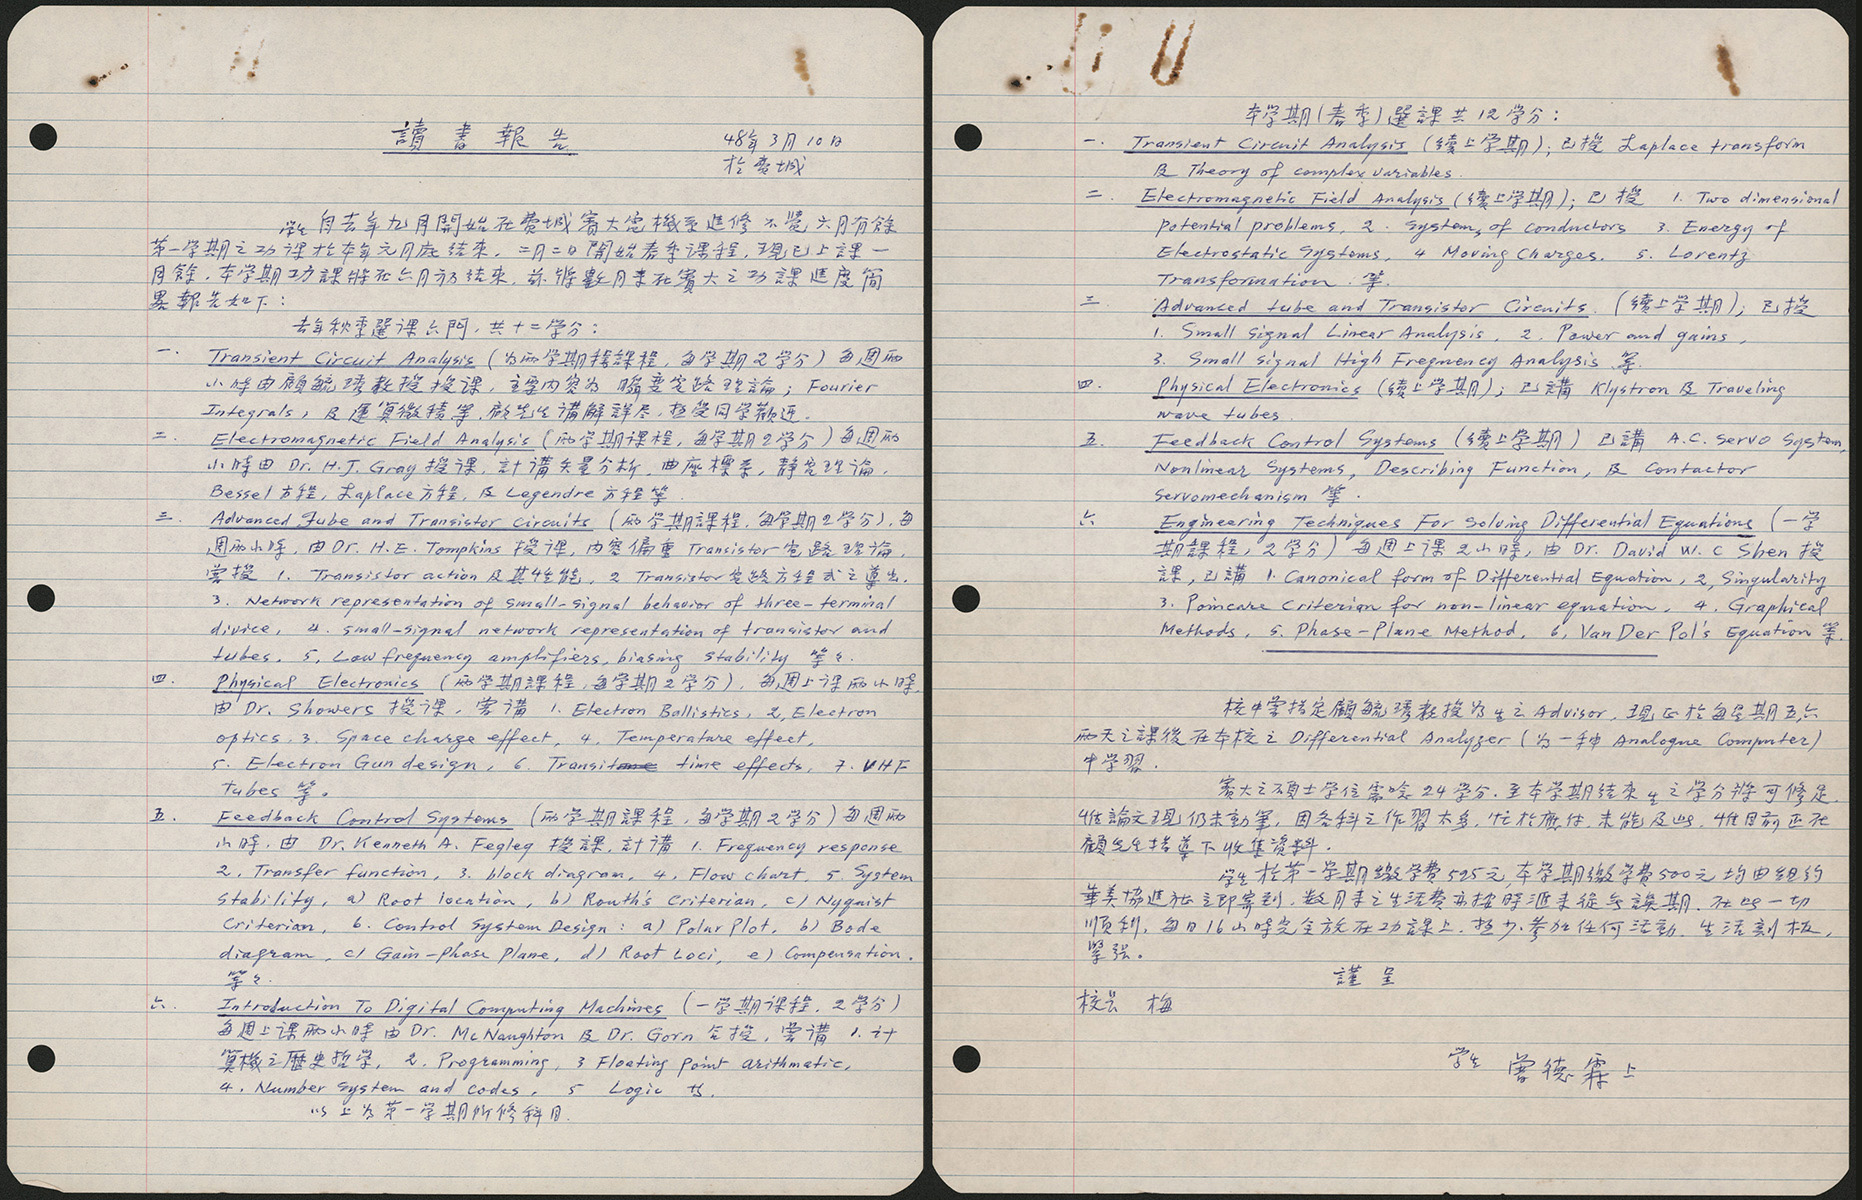 讀書報告
48年3月10日
於費城
學生自去年九月開始在費城賓大電機系進修不覺六月有餘
第一学期之功课於本年元月底结束。二月二日開始春季课程,現已上課一
月餘。本学期功課將在六月初结束。茲將數月来在賓大之功課進度簡
畧報告如下:
去年秋季選课六門,共十二学分:
一. Transient Circuit Analysis (为兩学期課程,每学期2学分) 每週兩
小時由顧毓琇教授授课,主要内容为 瞬变电路理論; Fourier
Integrals, 及運算微積等,顧先生講解詳尽,極受同学歡迎。
二. Electromagnetic Field Analysis (兩学期课程,每学期2学分) 每週兩
小時由 Dr. H.J. Gray 授课,計講矢量分析,曲座標系,静电理論,
Bessel 方程, Laplace 方程,及 Legendre 方程等.
三. Advanced Tube and Transistor circuits (兩学期課程,每学期2学分),每
週兩小時,由 Dr. H.E. Tompkins 授课,内容偏重 Transistor 电路理論,
曾授 1. Transistor action 及其性能, 2 Transistor 电路方程式之導出,
3. Network representation of small-signal behavior of three-terminal
divice, 4. small-signal network representation of transistor and
tubes, 5, Low frequency amplifiers, biasing stability 等々.
四. Physical Electronics (兩学期課程,每学期2学分), 每週上课兩小時,
由 Dr. Showers 授课,曾講 1. Electron Ballistics, 2, Electron
optics. 3. Space charge effect, 4. Temperature effect,
5. Electron Gun design, 6. Transit time effects, 7. VHF
tubes 等。
五. Feedback Control Systems (兩学期課程,每学期2学分) 每週兩
小時,由 Dr. Kenneth A. Fegley 授課,計講 1. Frequency response
2. Transfer function, 3. block diagram, 4. Flow chart, 5. System
stability, a) Root location, b) Routh's Criterian, c) Nyquist
Criterian, 6. Control System Design: a) Polar Plot, b) Bode
diagram, c) Gain-phase plane, d) Root Loci, e) Compensation.
等々.
六. Introduction To Digital Computing Machines (一学期课程,2学分)
每週上课兩小時由 Dr. McNaughton 及 Dr. Gorn 合授,曾講 1. 计
算機之歷史哲学, 2. Programming, 3 Floating point arithmatic,
4. Number System and codes, 5 Logic 等.
以上为第一学期所修科目.
本学期(春季)選課共12学分:
一. Transient Circuit Analysis (續上学期); 已授 Laplace transform
及 Theory of complex variables.
二. Electromagnetic Field Analysis (續上学期); 已授 1. Two dimensional
potential problems, 2. Systems of conductors 3. Energy of
Electrostatic Systems, 4 Moving Charges. 5. Lorentz
Transformation 等.
三. Advanced tube and Transistor Circuits. (續上学期); 已授
1. Small signal Linear Analysis, 2. Power and gains,
3. Small signal High Frequency Analysis 等.
四. Physical Electronics (續上学期); 已講 Klystron 及 Traveling
wave tubes.
五. Feedback Control Systems (續上学期) 已講 A.C. Servo System,
Nonlinear Systems, Describing Function, 及 Contactor
servomechanism 等.
六 Engineering Techniques For Solving Differential Equations (一学
期課程,2学分) 每週上課2小時,由 Dr. David W. C Shen 授
課,已講 1. Canonical form of Differential Equation, 2, Singularity
3. Poincare Criterian for non-linear equation, 4. Graphical
Methods, 5. Phase-Plane Method, 6, Van Der Pol's Equation 等.
校中曾指定顧毓琇教授为生之 Advisor, 現正於每星期五,六
兩天之課後在本校之 Differential Analyzer (为一种 Analogue Computer)
中学習.
賓大之硕士学位需唸24学分.至本学期结束生之学分將可修足.
惟論文現仍未動筆,因各科之作習太多,忙於應付,未能及此,惟目前正在
顧先生指導下收集資料.
学生於第一学期繳学費525元,本学期繳学費500元均由紐约
華美協進社立即寄到,数月来之生活費亦按時滙来從無誤期.在此一切
順利,每日16小時完全放在功課上,極少參加任何活動,生活刻板,
緊張。
謹呈
校長 梅
学生 曾德霖上